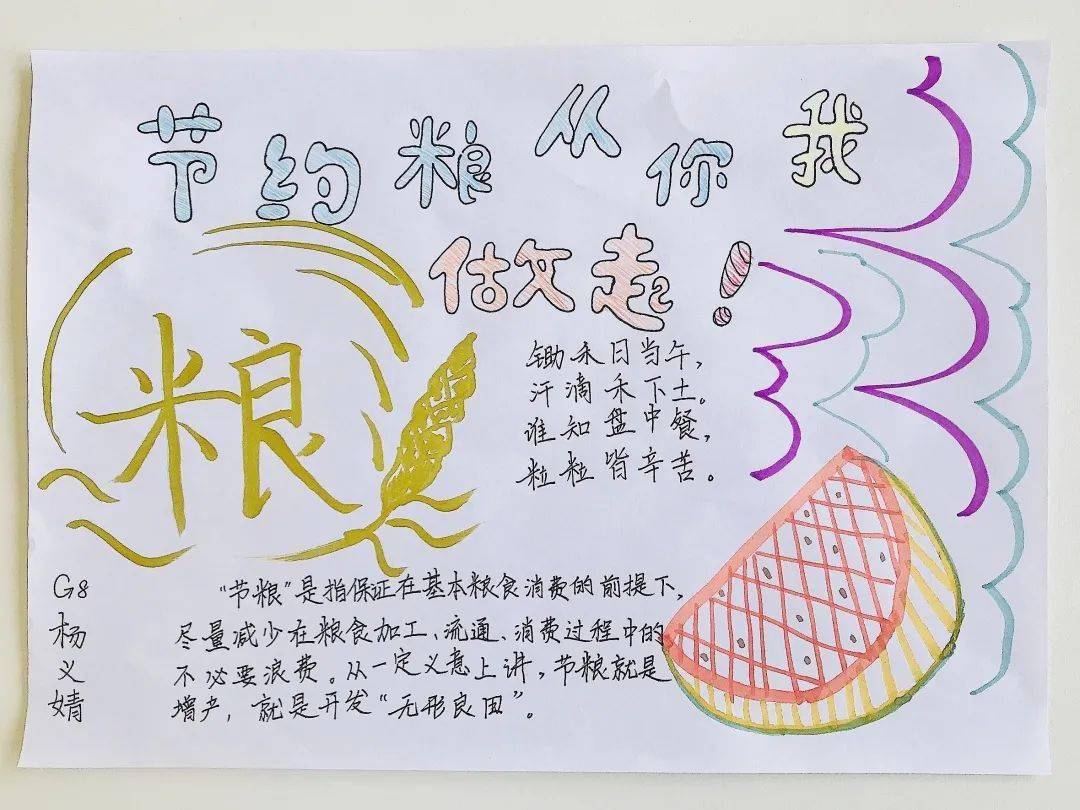 节约粮从你我
做起！
粮
锄禾日当午，
汗滴禾下土。
谁知盘中餐，
粒粒皆辛苦。
G8
杨
义
婧
“节粮”是指保证在基本粮食消费的前提下，
尽量减少在粮食加工、流通、消费过程中的
不必要浪费。从一定义意上讲，节粮就是
增产，就是开发“无形良田”。